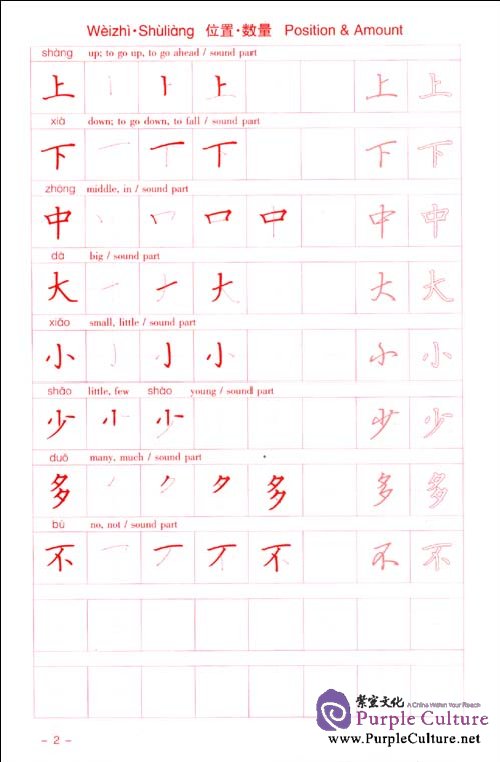 Wèizhì·Shùliàng 位置·数量 Position & Amount
shàng up; to go up, to go ahead / sound part
上 丨 ⺊ 上 上 上
xià down; to go down, to fall / sound part
下 一 丅 下 下 下
zhōng middle, in / sound part
中 丨 口 中 中 中
dà big / sound part
大 一 ナ 大 大 大
xiǎo small, little / sound part
小 亅 小 小 小
shǎo little, few shào young / sound part
少 小 少 少
duō many, much / sound part
多 丿 ク 夕 多 多 多
bù no, not / sound part
不 一 丆 不 不 不
紫宸文化 A China Within Your Reach
Purple Culture
www.PurpleCulture.net
- 2 -